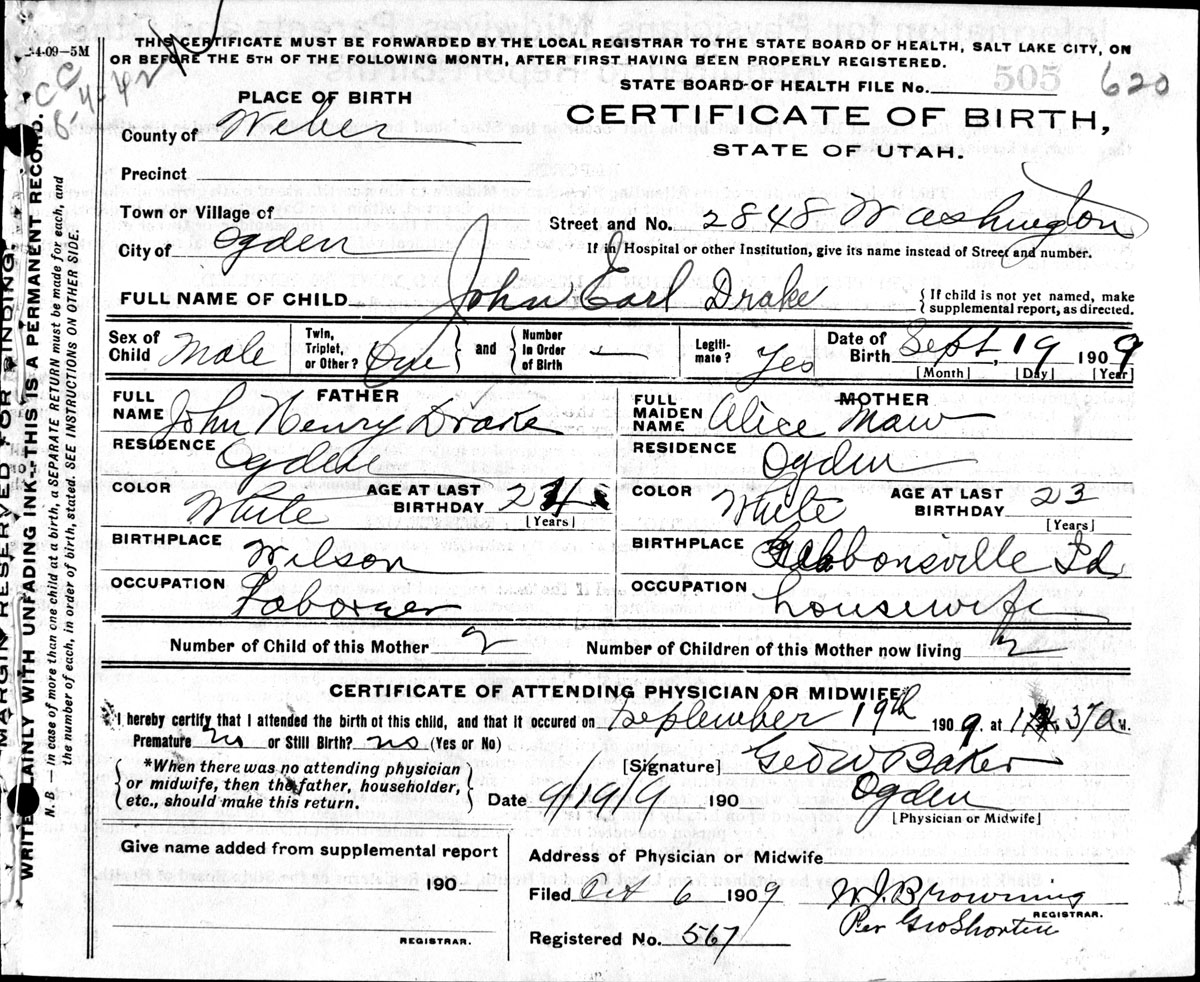 4-09-5M
THIS CERTIFICATE MUST BE FORWARDED BY THE LOCAL REGISTRAR TO THE STATE BOARD OF HEALTH, SALT LAKE CITY, ON
OR BEFORE THE 5TH OF THE FOLLOWING MONTH, AFTER FIRST HAVING BEEN PROPERLY REGISTERED.
505 620
STATE BOARD OF HEALTH FILE No.
PLACE OF BIRTH
CERTIFICATE OF BIRTH,
STATE OF UTAH.
County of Weber
Precinct
Town or Village of
Street and No. 2848 Washington
City of Ogden
If in Hospital or other Institution, give its name instead of Street and number.
FULL NAME OF CHILD John Earl Drake
{If child is not yet named, make
supplemental report, as directed.
Sex of Child Male
Twin, Triplet, or Other? One
and
Number In Order of Birth —
Legiti-mate? Yes
Date of Birth Sept, 19 1909
[Month] [Day] [Year]
FATHER
FULL NAME John Henry Drake
RESIDENCE Ogden
COLOR White AGE AT LAST BIRTHDAY 24
[Years]
BIRTHPLACE Wilson
OCCUPATION Laborer
MOTHER
FULL MAIDEN NAME Alice Maw
RESIDENCE Ogden
COLOR White AGE AT LAST BIRTHDAY 23
[Years]
BIRTHPLACE Gibbonsville Id
OCCUPATION housewife
Number of Child of this Mother 2
Number of Children of this Mother now living 2
CERTIFICATE OF ATTENDING PHYSICIAN OR MIDWIFE
I hereby certify that I attended the birth of this child, and that it occured on September 19th 1909, at 37a M.
Premature no or Still Birth? no (Yes or No)
*When there was no attending physician
or midwife, then the father, householder,
etc., should make this return.
[Signature] Geo W Baker
Date 9/19/9 190 Ogden
[Physician or Midwife]
Give name added from supplemental report
190
REGISTRAR.
Address of Physician or Midwife
Filed Oct 6 1909
W. J. Browning
REGISTRAR.
Per Geo Shorten
Registered No. 567
MARGIN RESERVED FOR BINDING
WRITE PLAINLY WITH UNFADING INK--THIS IS A PERMANENT RECORD.
N. B — in case of more than one child at a birth, a SEPARATE RETURN must be made for each, and
the number of each, in order of birth, stated. SEE INSTRUCTIONS ON OTHER SIDE.